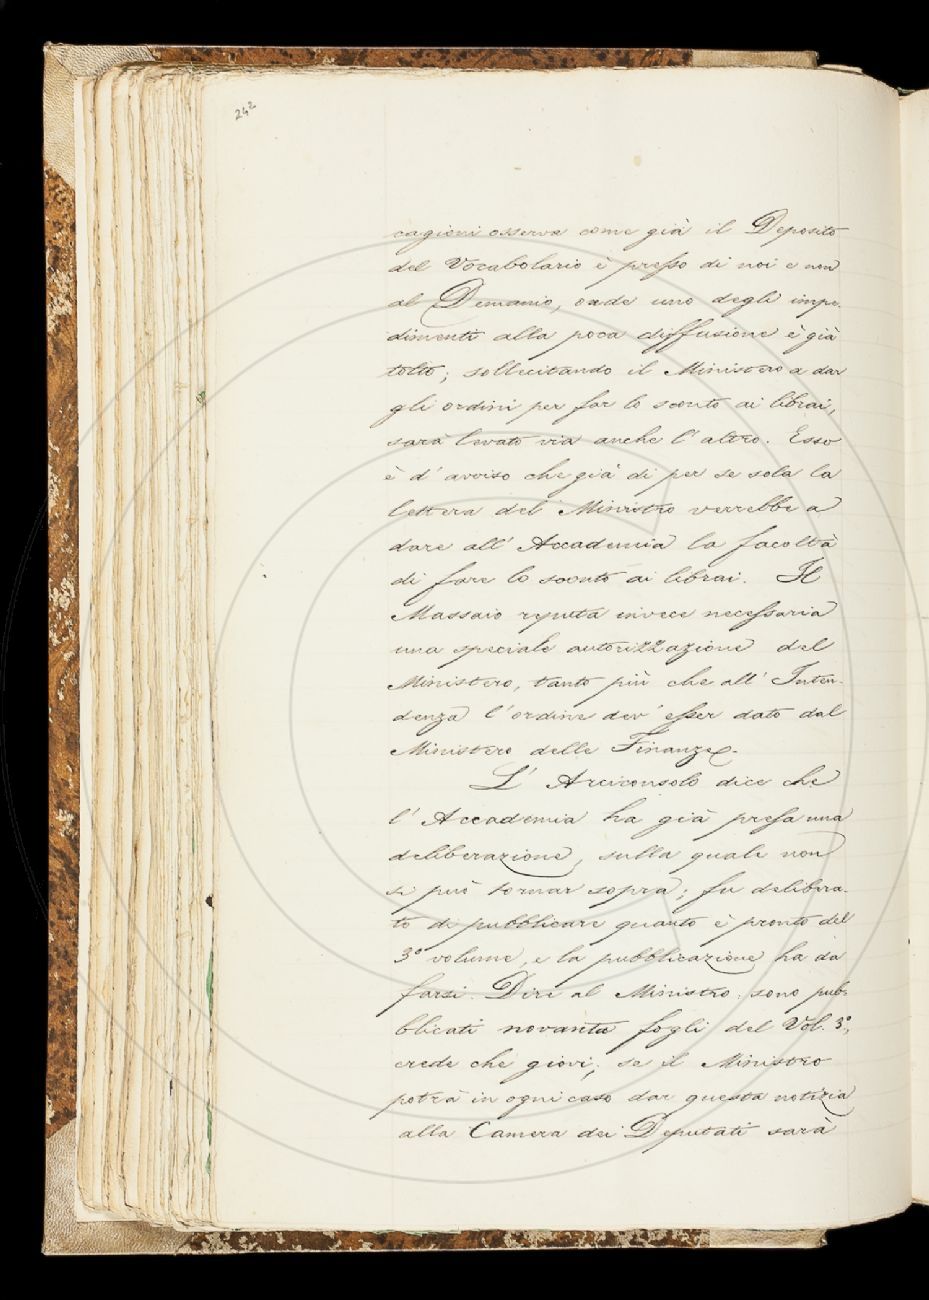 242
cagioni osserva come già il Deposito
del Vocabolario è presso di noi e non
al Demanio, onde uno degli impe-
dimenti alla poca diffusione è già
tolto; sollecitando il Ministero a dar
gli ordini per far lo sconto ai librai,
sarà levato via anche l'altro. Esso
è d'avviso che già di per se sola la
lettera del Ministro verrebbe a
dare all'Accademia la facoltà
di fare lo sconto ai librai. Il
Massaio reputa invece necessaria
una speciale autorizzazione del
Ministero, tanto più che all'Inten-
denza l'ordine dev'esser dato dal
Ministero delle Finanze.
L'Arciconsolo dice che
l'Accademia ha già presa una
deliberazione, sulla quale non
si può tornar sopra; fu delibera-
to di pubblicare quanto è pronto del
3º volume, e la pubblicazione ha da
farsi. Dire al Ministro: sono pub-
blicati novanta fogli del Vol. 3º,
crede che giovi; se il Ministro
potrà in ogni caso dar questa notizia
alla Camera dei Deputati sarà